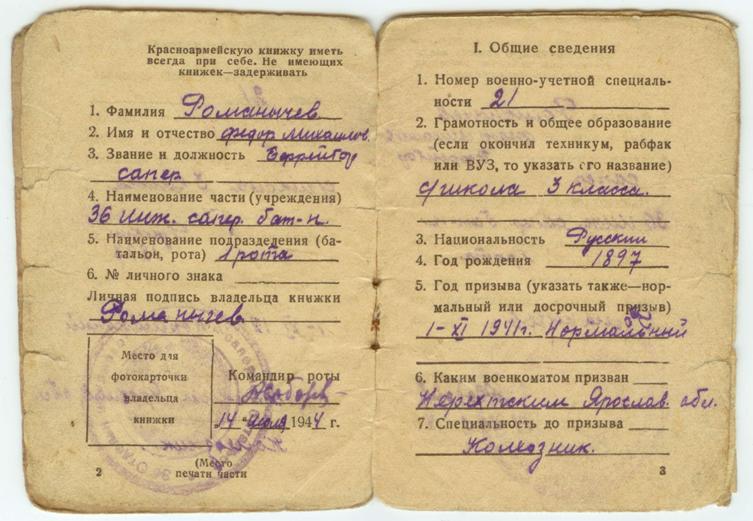 Красноармейскую книжку иметь
всегда при себе. Не имеющих
книжек—задерживать
1. Фамилия Романычев
2. Имя и отчество Федор Михайлов.
3. Звание и должность Ефрейтор
сапер
4. Наименование части (учреждения)
36 инж. сапер. бат-н.
5. Наименование подразделения (ба-
тальон, рота) 1 рота
6. № личного знака
Личная подпись владельца книжки
Романычев
Место для
фотокарточки
владельца
книжки
Командир роты
14 июля 1944 г.
(Место
печати части
2
I. Общие сведения
1. Номер военно-учетной специаль-
ности 21
2. Грамотность и общее образование
(если окончил техникум, рабфак
или ВУЗ, то указать его название)
школа 3 класса.
3. Национальность Русский
4. Год рождения 1897
5. Год призыва (указать также—нор-
мальный или досрочный призыв)
1-XI 1941г. Нормальный
6. Каким военкоматом призван
Нерехтским Ярослав. обл.
7. Специальность до призыва
Колхозник.
3